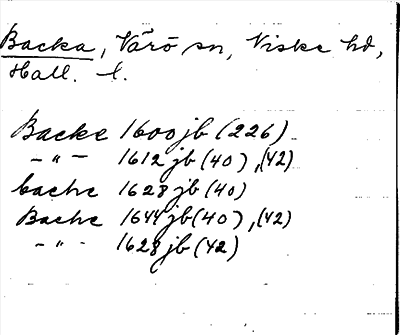 Backa, Värö sn, Viske hd,
Hall. l.
Backe 1600 jb (226)
– " – 1612 jb (40), (42)
backe 1628 jb (40)
Backe 1644 jb (40), (42)
– " – 1628 jb (42)